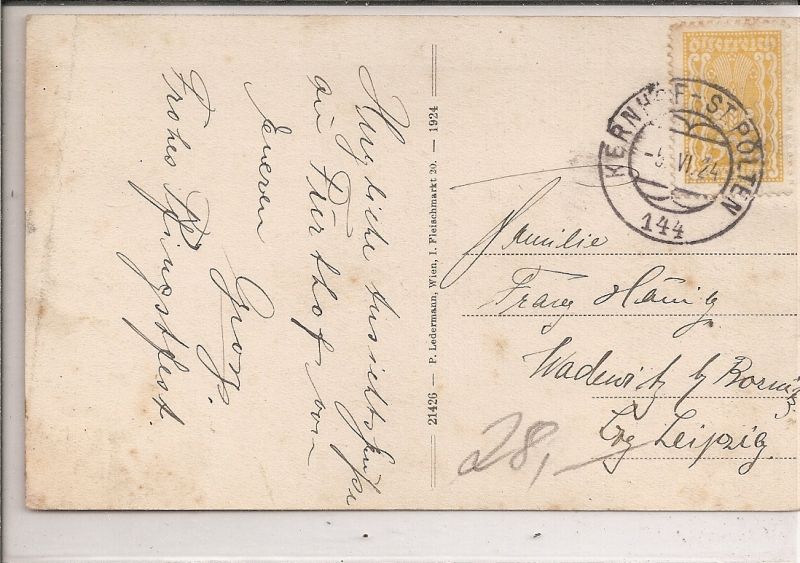 Herzliche Ansichtsgrüße
aus Furthof von
Eueren
Frohes Pfingstfest.
21426 — P. Ledermann, Wien, I. Fleischmarkt 20. — 1924
Österreich
KERNHOF-ST PÖLTEN
VI 24
144
Familie
Franz
Wadewitz b/
Leipzig
28,-